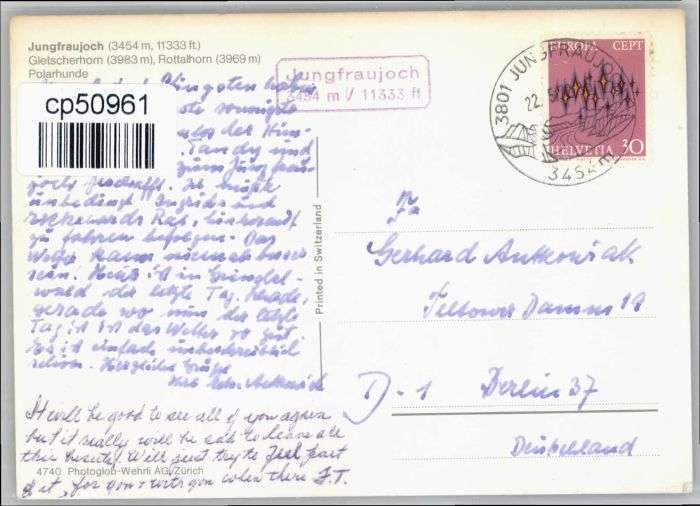 Jungfraujoch (3454 m, 11333 ft.)
Gletscherhorn (3983 m), Rottalhorn (3969 m)
Polarhunde
cp50961
Jungfraujoch
3454 m / 11333 ft
3801 JUNGFRAUJOCH
22.
3454 m
EUROPA CEPT
HELVETIA 30
Pfingsten haben
sonnigste
des Him-
Tandy und
zum Jungfrau-
joch geschafft. Ich mußte
unbedingt Ingrids und
Rat, hinauf
zu fahren befolgen. Das
Wetter kann niemals besser
sein. Heute ist in Grindel-
wald der letzte Tag. Gerade,
gerade wo nun der letzte
Tag ist ist das Wetter so gut
Es ist einfach unbeschreiblich
schön. Herzliche Grüße
Antkowiak
It will be good to see all of you again
but it really will be sad to leave all
this beauty. Will just try to feel part
of it, for you + with you when there J.T.
4740 Photoglob-Wehrli AG/Zürich
Printed in Switzerland
Fa
Gerhard Antkowiak
Teltower Damm 19
D-1 Berlin 37
Deutschland